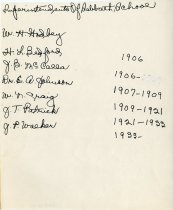 Superintendents Of Sabbath School
W. H. Hadley
H. L. Bigford
J. B. McCalla 1906
Dr. C. A. Johnson 1906-
W. N. Craig 1907-1909
J. T. Patrick 1909-1921
J. P. Walker 1921-1933
1933-